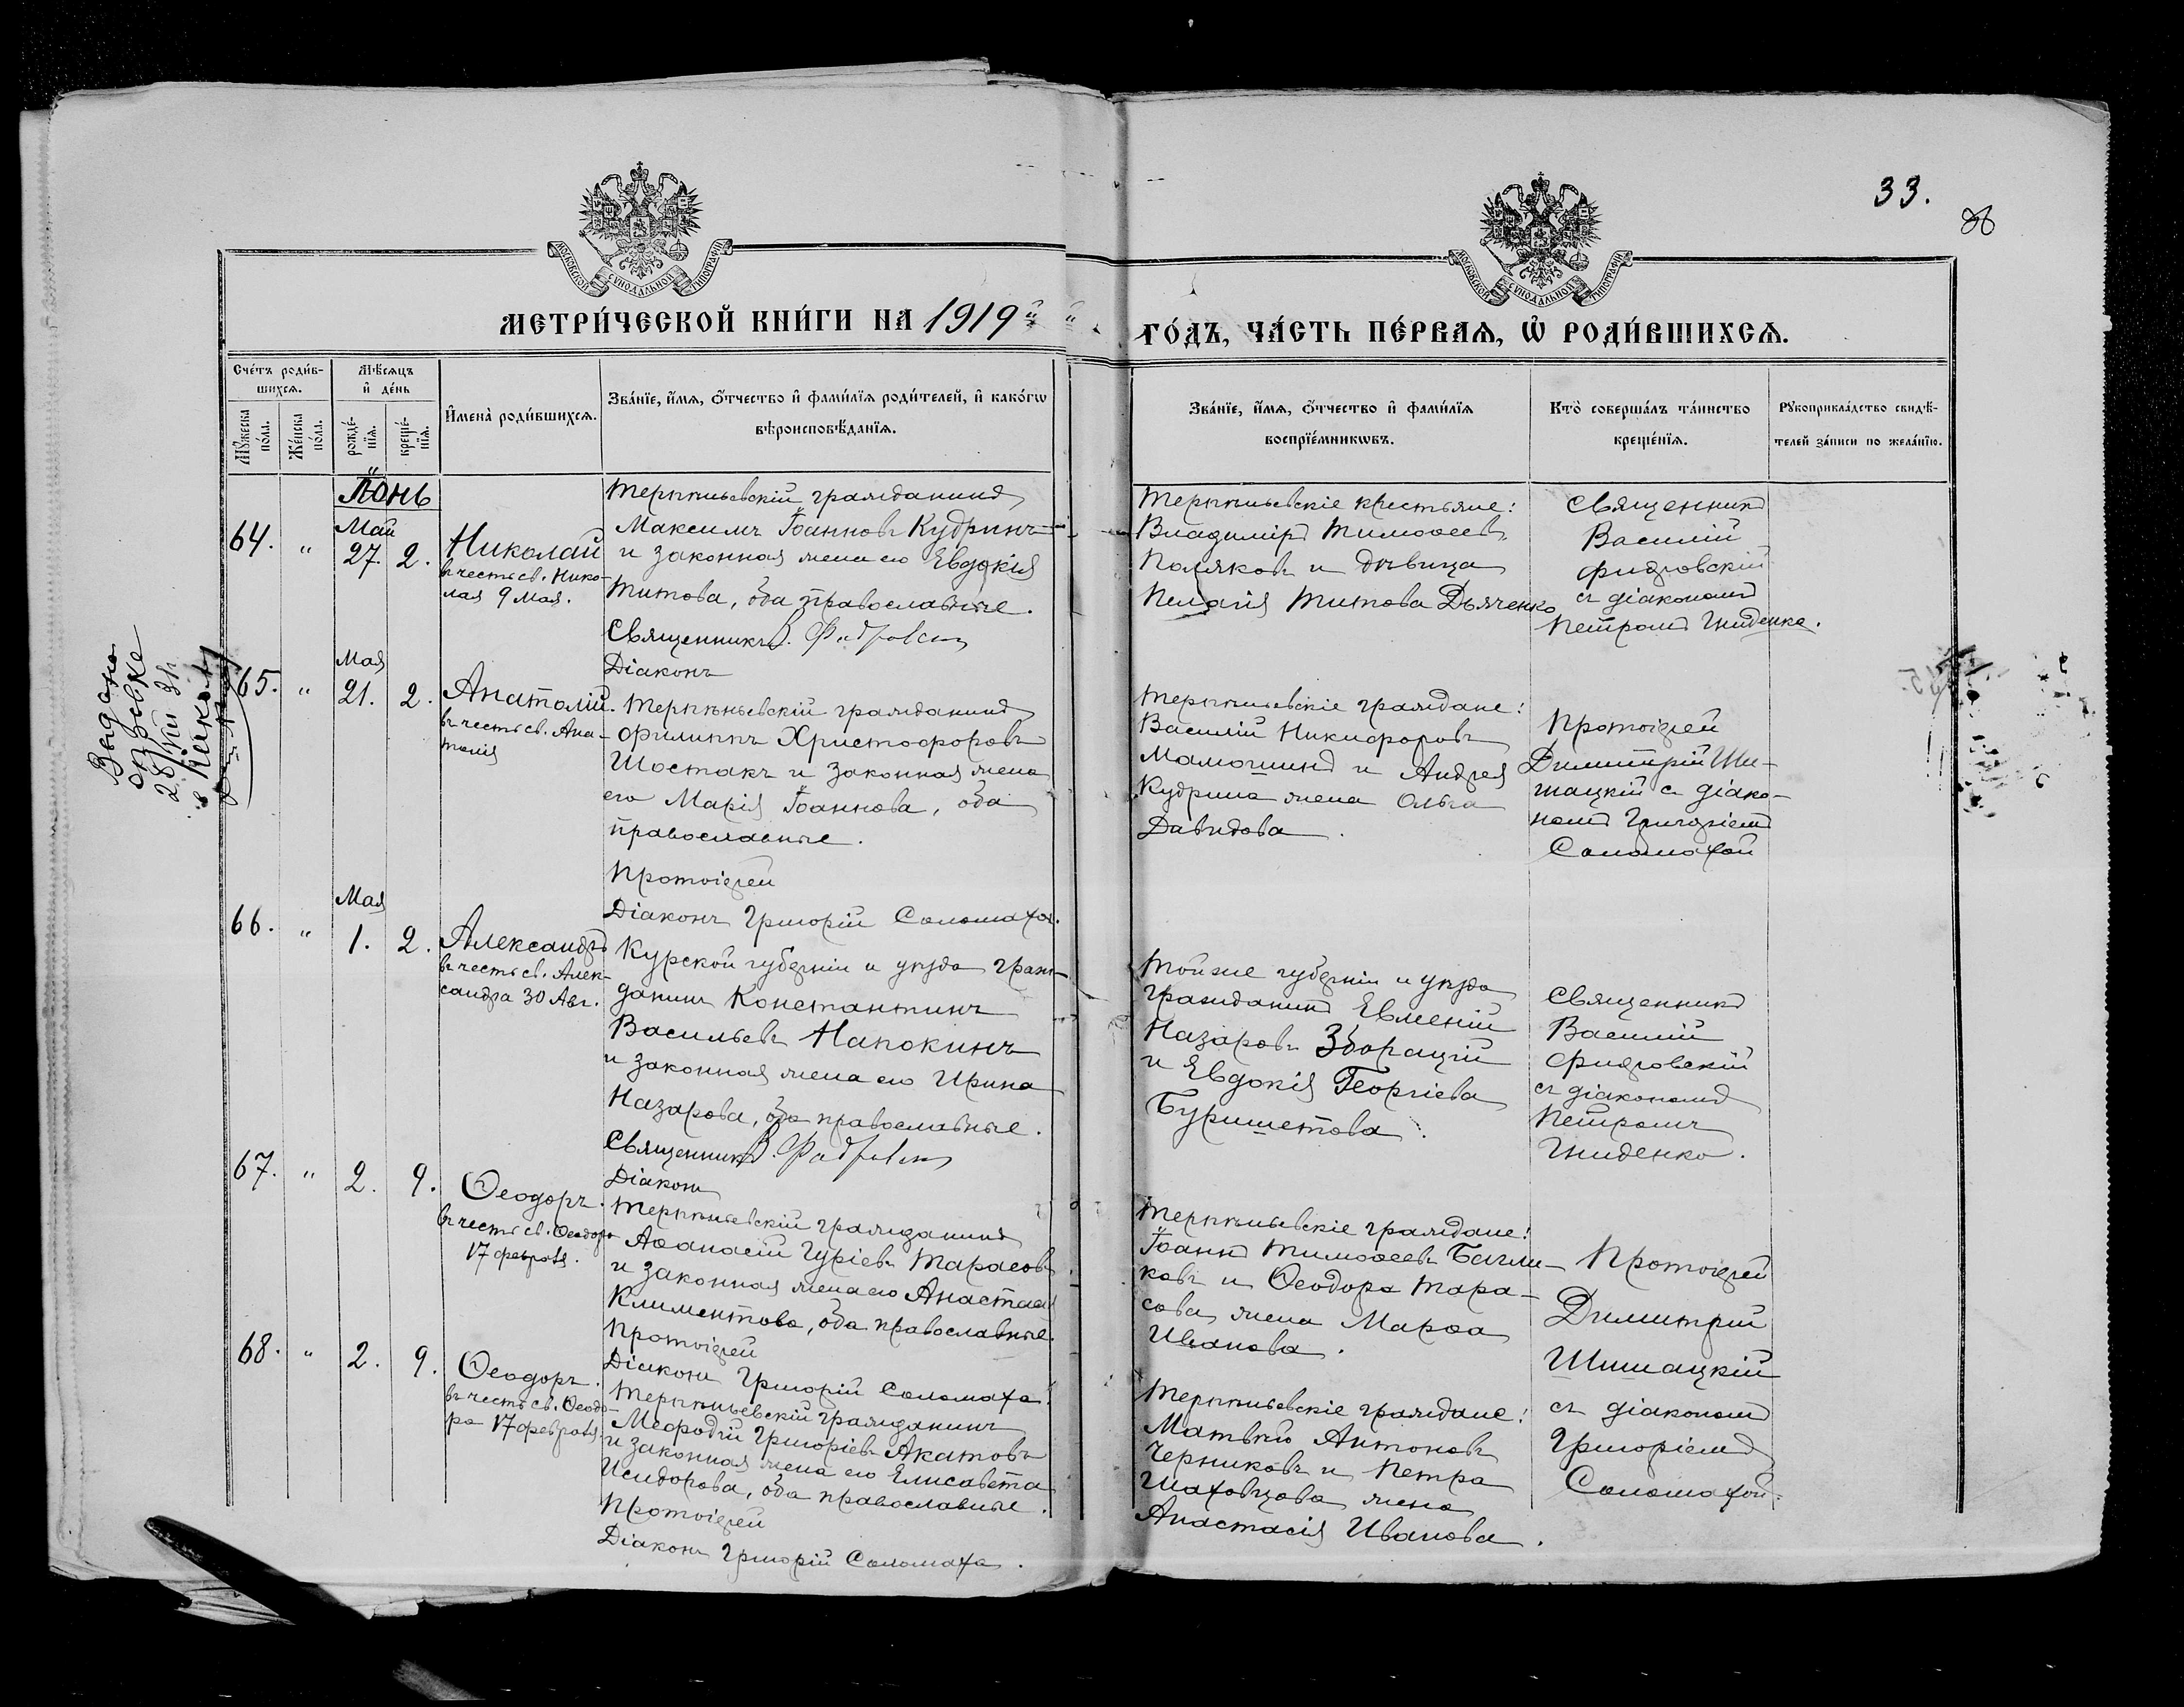 33.
МОСКОВСКОЙ СѴНОДАЛЬНОЙ ТИПОГРАФІИ
МОСКОВСКОЙ СѴНОДАЛЬНОЙ ТИПОГРАФІИ
МЕТРИ́ЧЕСКОЙ КНИ́ГИ НА 1919й
ГО́ДЪ, ЧА́СТЬ ПЕ́РВАЯ, Ѡ҆ РОДИ́ВШИХСЯ.
Сче́тъ роди́в-
шихсѧ.
Мꙋ́жеска
по́ла.
Же́нска
по́ла.
Мѣ́сѧцъ
и҆ де́нь
рожде́-
нїѧ.
креще́-
нїѧ.
И҆мена̀ роди́вшихсѧ.
Зва́нїе, и҆́мѧ, ѻ҆́тчество и҆ фами́лїѧ роди́телей, и҆ како́гѡ
вѣроисповѣ́данїѧ.
Зва́нїе, и҆́мѧ, ѻ҆́тчество и҆ фами́лїѧ
воспрїе́мникѡвъ.
Кто̀ соверша́лъ та́инство
креще́нїѧ.
Рꙋкоприкла́дство свидѣ́-
телей за́писи по жела́нїю.
Іюнь
64. "
Май
27. 2.
Николай
въ честь св. Нико-
лая 9 Мая.
Терпѣньевскій гражданинъ
Максимъ Іоанновъ Кудринъ
и законная жена его Евдокія
Титова, оба православные.
Священникъ В.
Діаконъ
Терпѣньевскіе крестьяне:
Владиміръ Тимоѳеевъ
Поляковъ и дѣвица
Пелагія Титова Дьяченко
Священникъ
Василій
съ діакономъ
Петромъ Гниденко.
Выдано
справка
28/
65. "
Мая
21. 2.
Анатолій.
въ честь св. Ана-
толія
Терпѣньевскій гражданинъ
Филиппъ Христофоровъ
Шостакъ и законная жена
его Марія Іоаннова, оба
православные.
Протоіерей
Діаконъ Григорій Соломаха.
Терпѣньевскіе граждане:
Василій Никифоровъ
Мамошинъ и Андрея
Кудрина жена Ольга
Давидова.
Протоіерей
Димитрій Ши-
шацкій съ діако-
номъ Григоріемъ
Соломахой
66. "
Мая
1. 2.
Александръ
въ честь св. Алек-
сандра 30 Авг.
Курской губерніи и уѣзда граж-
данинъ Константинъ
Васильевъ Напокинъ
и законная жена его Ирина
Назарова, оба православные.
Священникъ В.
Діаконъ
Той же губерніи и уѣзда
гражданинъ Евмений
Назаровъ
и Евдокія Георгіева
Священникъ
Василій
съ діакономъ
Петромъ
Гниденко.
67. " 2. 9.
Ѳеодоръ.
въ честь св. Ѳеодора
17 февраля.
Терпѣньевскій гражданинъ
Аѳанасій Гуріевъ Тарасовъ
и законная жена его Анастасія
Климентова, оба православные.
Протоіерей
Діаконъ Григорій Соломаха.
Терпѣньевскіе граждане:
Іоаннъ Тимоѳеевъ Багли-
ковъ и Ѳеодора Тара-
сова жена Марѳа
Иванова.
Протоіерей
Димитрій
Шишацкій
съ діакономъ
Григоріемъ
Соломахой.
68. " 2. 9.
Ѳеодоръ.
въ честь св. Ѳеодо-
ра 17 февраля.
Терпѣньевскій гражданинъ
Меѳодій Григоріевъ Акатовъ
и законная жена его Елисавета
Исидорова, оба православные.
Протоіерей
Діаконъ Григорій Соломаха.
Терпѣньевскіе граждане:
Матвѣй Антоновъ
Черниковъ и Петра
Шаховцова жена
Анастасія Иванова.